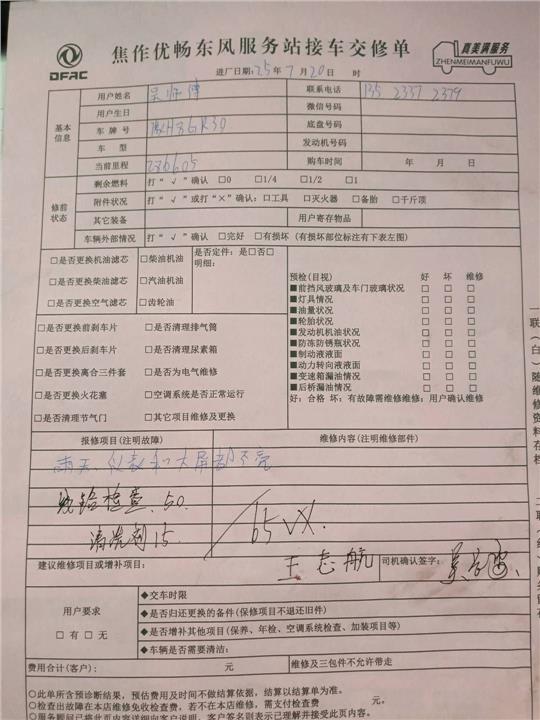 DFAC
焦作优畅东风服务站接车交修单
真美满服务
ZHENMEIMANFUWU
进厂日期:25年7月20日 时
基本信息
用户姓名 吴师傅 联系电话 135 2337 2379
用户生日 微信号码
车牌号 豫H86R30 底盘号码
车型 发动机号码
当前里程 236605 购车时间 年 月 日
修前状态
剩余燃料 打“√”确认 □0 □1/4 □1/2 □1
附件状况 打“√”或打“×”确认:□工具 □灭火器 □备胎 □千斤顶
其它装备 用户寄存物品
车辆外部情况 打“√”确认 □完好 □有损坏(有损坏部位标注有下表左图)
□是否更换机油滤芯 □柴油机油 是否定件:是□否□
明细:
□是否更换柴油滤芯 □汽油机油
□是否更换空气滤芯 □齿轮油
预检(目视) 好 坏 维修
■前挡风玻璃及车门玻璃状况 □ □ □
■灯具情况 □ □ □
■油量状况 □ □ □
■轮胎状况 □ □ □
■发动机机油状况 □ □ □
■防冻防锈瓶状况 □ □ □
■制动液液面 □ □ □
■动力转向液液面 □ □ □
■变速箱漏油情况 □ □ □
■后桥漏油情况 □ □ □
好:合格 坏:有故障需维修维修:用户确认维修
□是否更换前刹车片 □是否清理排气筒
□是否更换后刹车片 □是否清理尿素箱
□是否更换离合三件套 □是否为电气维修
□是否更换火花塞 □空调系统是否正常运行
□是否清理节气门 □其它项目维修及更换
报修项目(注明故障) 维修内容(注明维修部件)
雨天 仪表和大屏都不亮
线路检查.50
清洗剂15. 65
建议维修项目或增补项目: 王志航 司机确认签字:
用户要求
□有 □无
◆交车时限
◆是否归还更换的备件(保修项目不退还旧件)
◆是否增补其他项目(保养、年检、空调系统检查、加装项目等)
◆车辆是否需要清洁:
费用合计(客户): 元 维修及三包件不允许带走
○此单所含预诊断结果,预估费用及时间不做结算依据,结算以结算单为准。
○检查出故障在本店维修免收检查费,若不在本店维修,需支付检查费 元。
○服务顾问已将此页内容详细向客户说明。客户签名则表示已理解并接受此页内容。
一联(白)随维修资料存档
二联